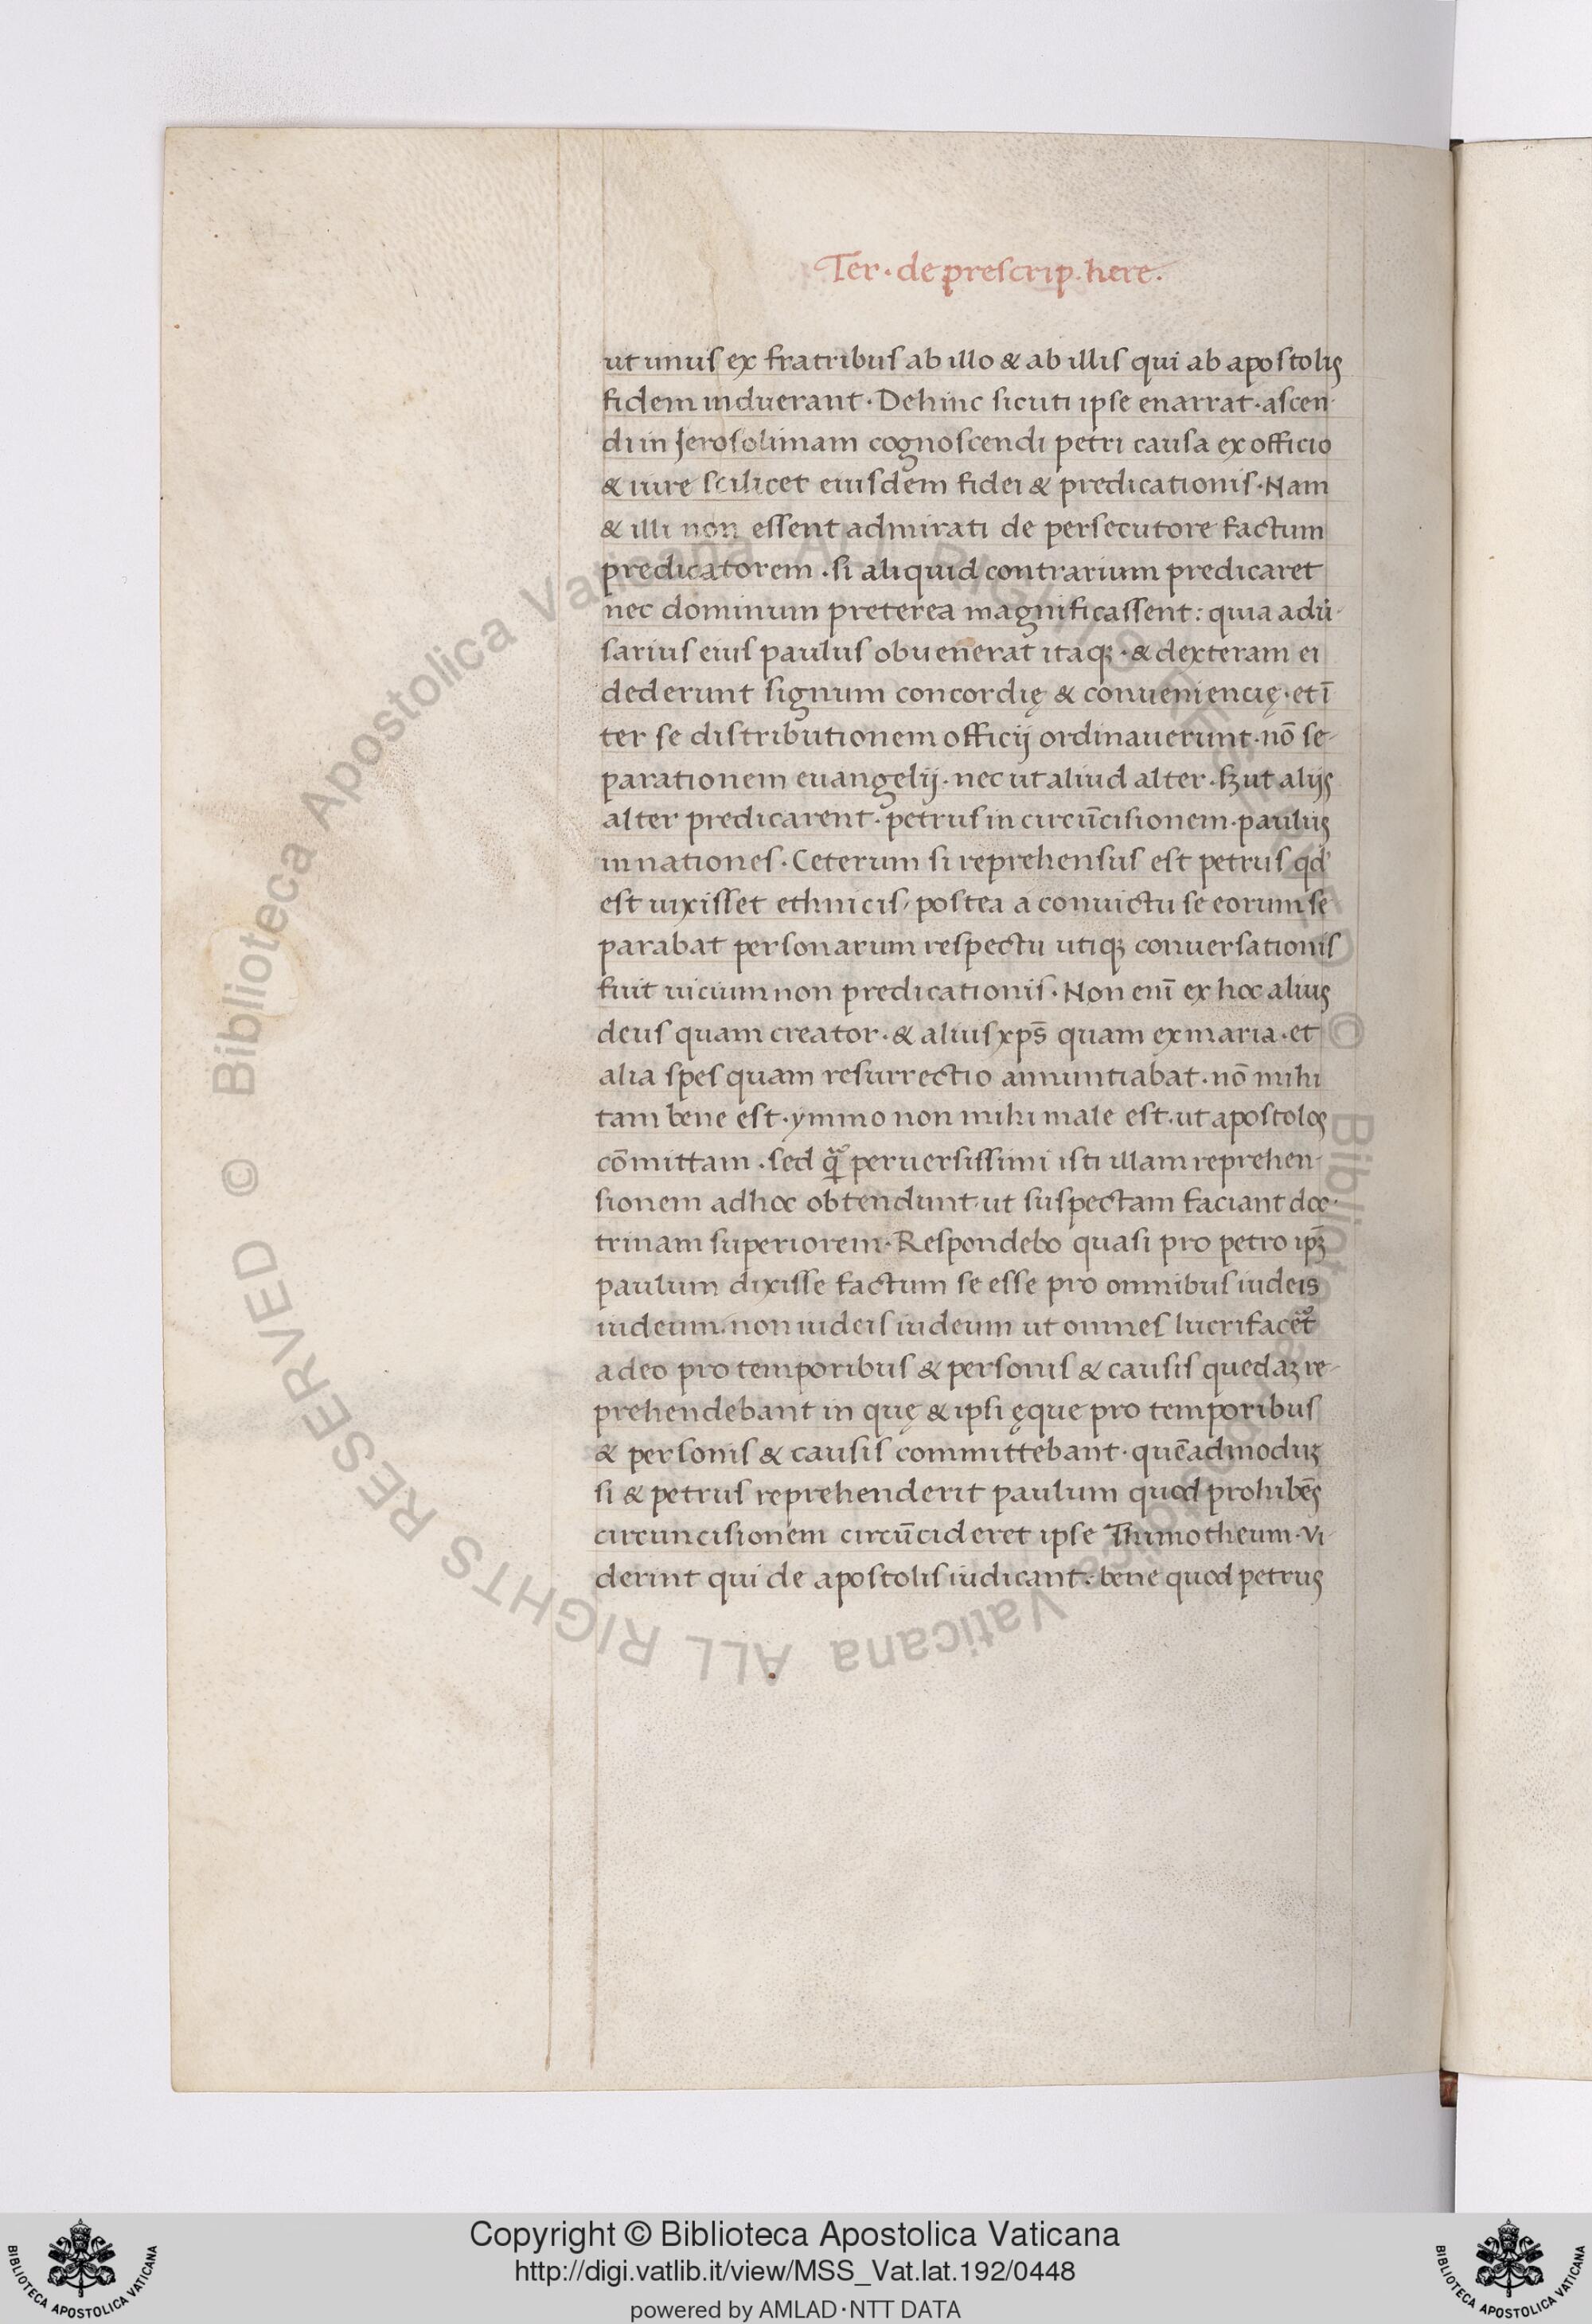 Ter · de prescrip. here.
ut unus ex fratribus ab illo & ab illis qui ab apostolis
fidem induerant · Dehinc sicuti ipse enarrat · ascen-
di in Jerosolimam cognoscendi petri causa ex officio
& iure scilicet eiusdem fidei & predicationis · Nam
& illi non essent admirati de persecutore factum
predicatorem · si aliquid contrarium predicaret
nec dominum preterea magnificassent : quia adũ-
sarius eius paulus obvenerat itaqꝫ · & dexteram ei
dederunt signum concordię & conveniencię · et ĩ
ter se distributionem officij ordinaverunt · nõ se-
parationem evangelij · nec ut aliud alter · sꝫ ut alijs
alter predicarent · petrus in circũcisionem · paulus
in nationes · Ceterum si reprehensus est petrus qd'
est vixisset ethnicis, postea a convictu se eorum se
parabat personarum respectu utiqꝫ conversationis
fuit vicium non predicationis · Non eni᷈ ex hoc alius
deus quam creator · & alius xp̄s quam ex maria · et
alia spes quam resurrectio annuntiabat · nõ mihi
tam bene est · ymmo non mihi male est · ut apostolos
cõmittam · sed q̃ perversissimi isti illam reprehen-
sionem ad hoc obtendunt · ut suspectam faciant doc-
trinam superiorem · Respondebo quasi pro petro ipꝫ̃
paulum dixisse factum se esse pro omnibus iudeis
iudeum · non iudeis iudeum ut omnes lucrifacet̃
adeo pro temporibus & personis & causis quedaꝫ re-
prehendebant in quę & ipsi ęque pro temporibus
& personis & causis committebant · quẽadmoduꝫ
si & petrus reprehenderit paulum quod prohibẽs
circuncisionem circũcideret ipse Thimotheum · Vi-
derint qui de apostolis iudicant · bene quod petrus
© Biblioteca Apostolica Vaticana ALL RIGHTS RESERVED © Biblioteca Apostolica Vaticana ALL RIGHTS RESERVED
BIBLIOTECA APOSTOLICA VATICANA
Copyright © Biblioteca Apostolica Vaticana
http://digi.vatlib.it/view/MSS_Vat.lat.192/0448
powered by AMLAD·NTT DATA
BIBLIOTECA APOSTOLICA VATICANA